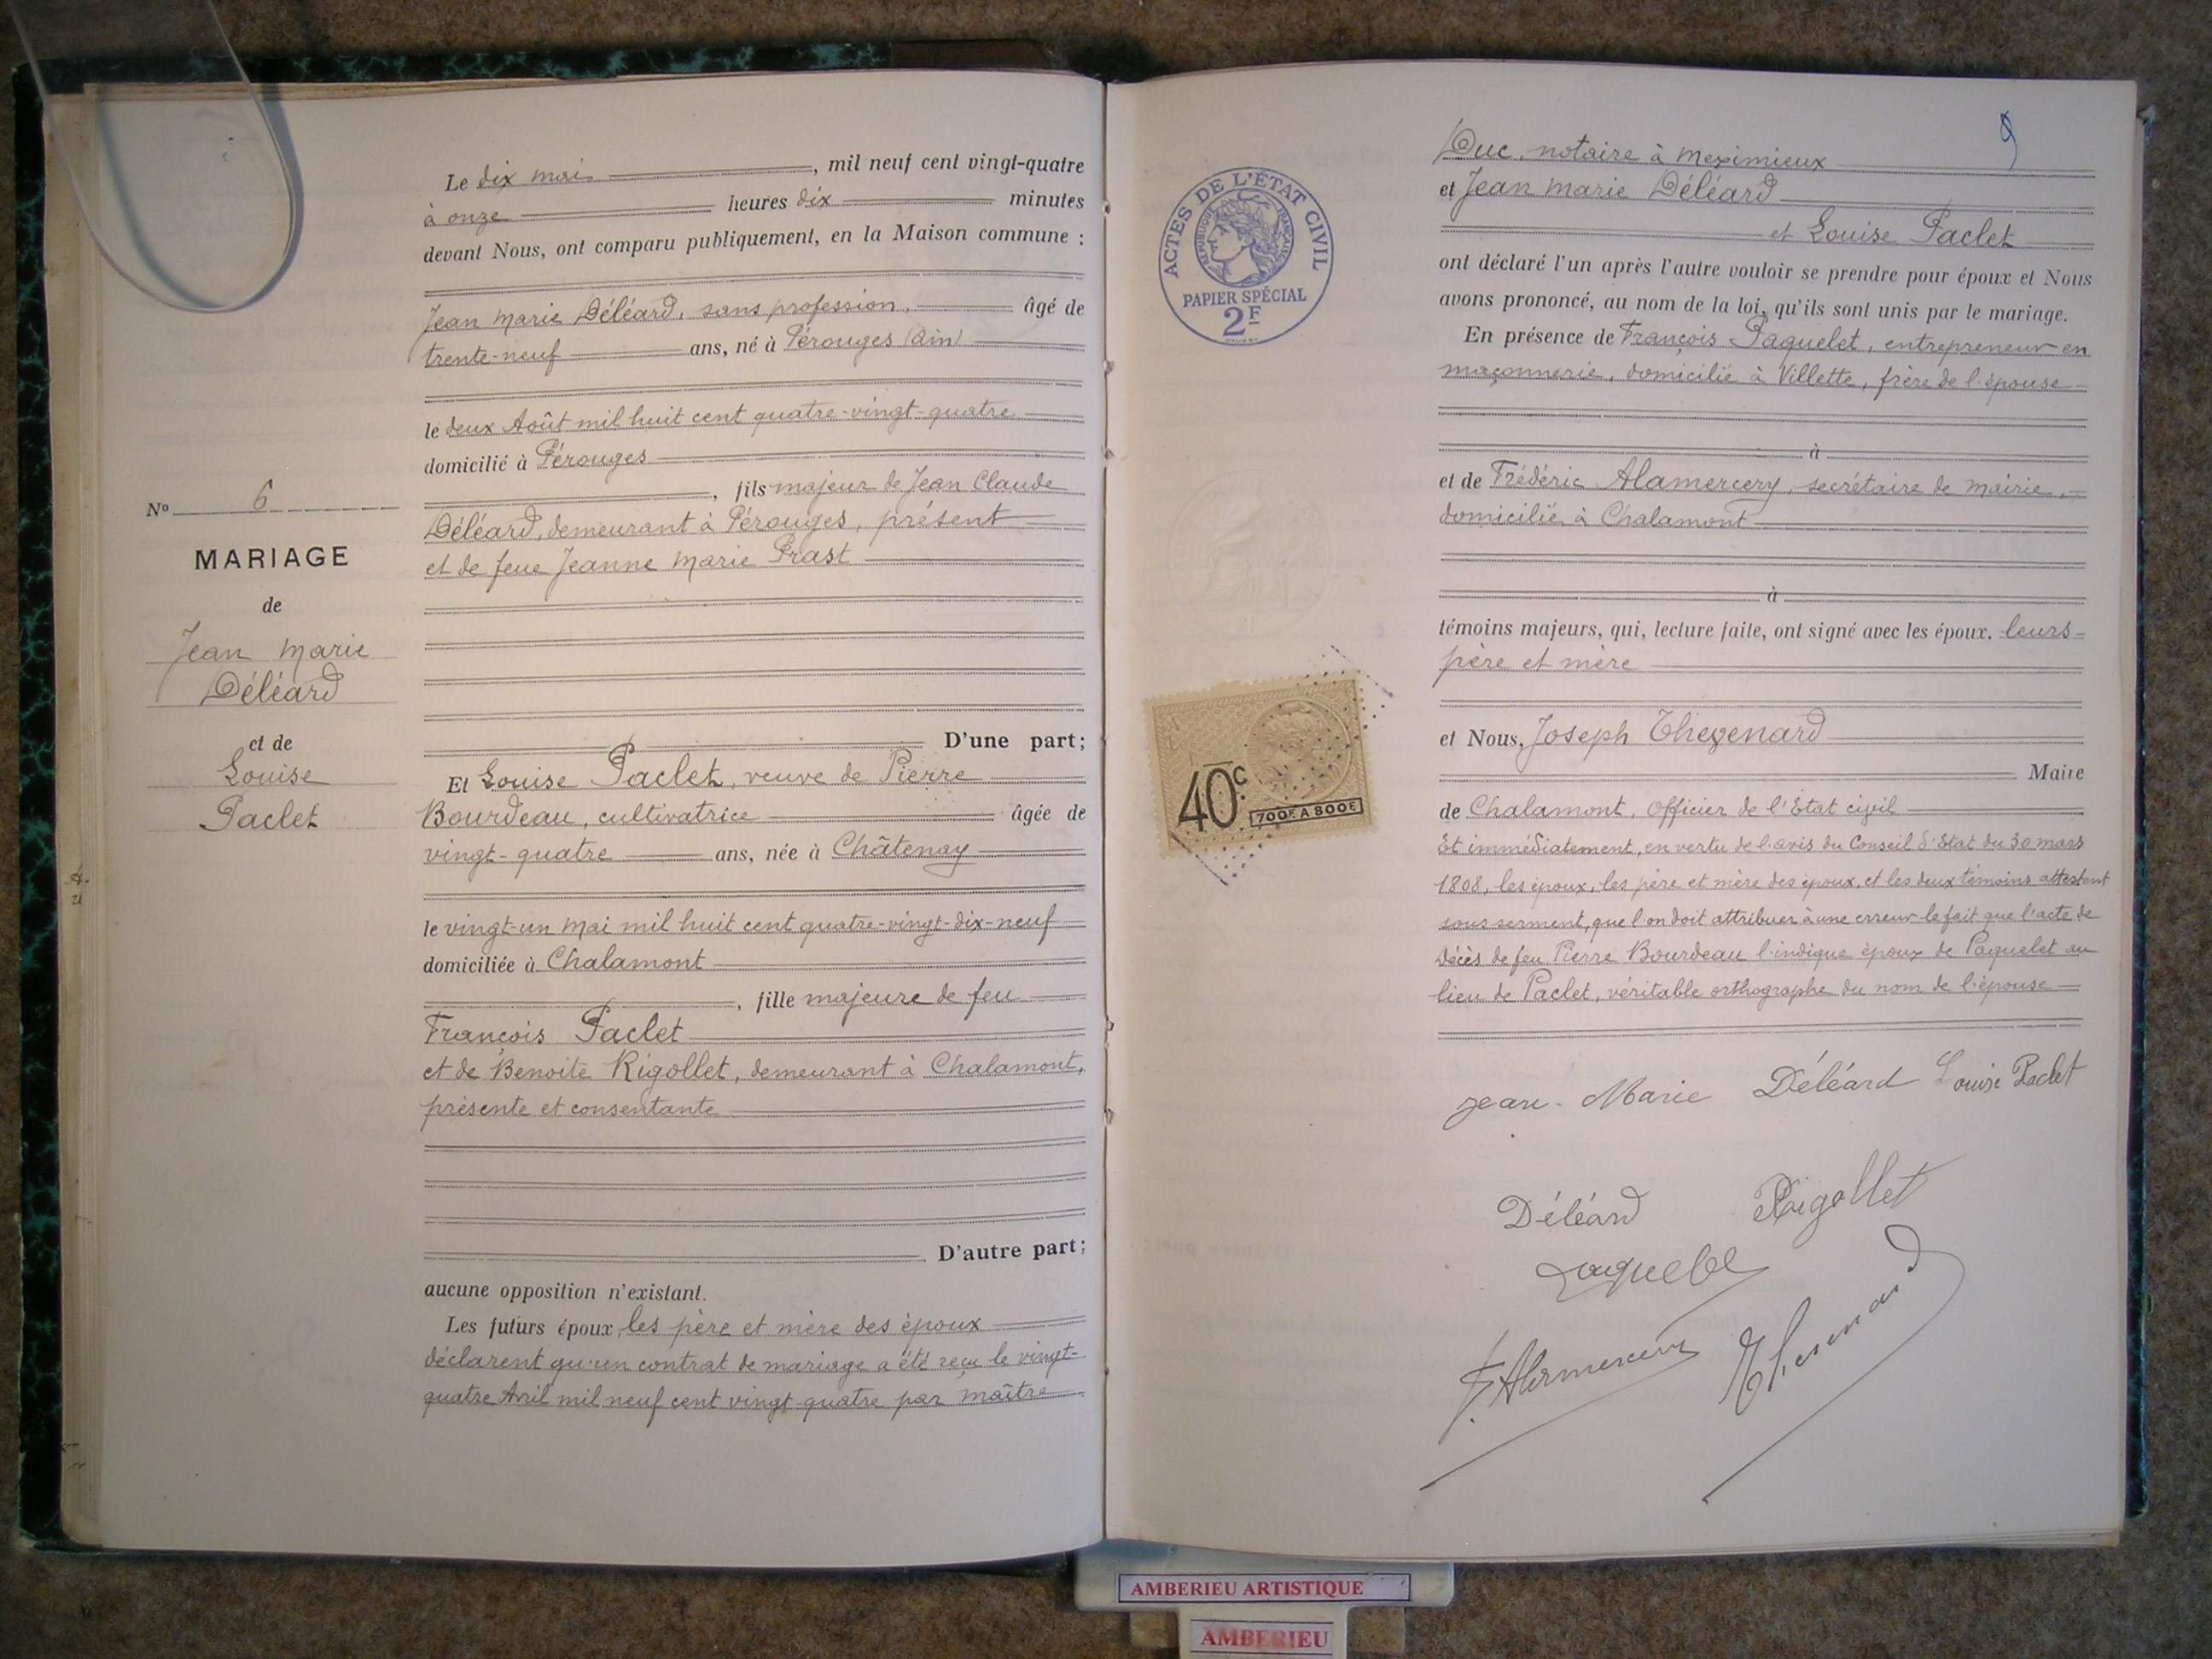 Le dix mai, mil neuf cent vingt-quatre
à onze heures dix minutes
devant Nous, ont comparu publiquement, en la Maison commune :
Jean Marie Déléard, sans profession, âgé de
trente-neuf ans, né à Pérouges (Ain)
le deux Août mil huit cent quatre-vingt-quatre
domicilié à Pérouges
, fils majeur de Jean Claude
Déléard, demeurant à Pérouges, présent
et de feue Jeanne Marie Prast
D'une part;
Et Louise Paclet, veuve de Pierre
Bourdeau, cultivatrice âgée de
vingt-quatre ans, née à Châtenay
le vingt-un Mai mil huit cent quatre-vingt-dix-neuf
domiciliée à Chalamont
, fille majeure de feu
François Paclet
et de Benoite Rigollet, demeurant à Chalamont,
présente et consentante
D'autre part;
aucune opposition n'existant.
Les futurs époux, les père et mère des époux
déclarent qu'un contrat de mariage a été reçu le vingt-
quatre Avril mil neuf cent vingt-quatre par maître
No 6
MARIAGE
de
Jean Marie
Déléard
et de
Louise
Paclet
9
Duc, notaire à Meximieux
et Jean Marie Déléard
et Louise Paclet
ont déclaré l'un après l'autre vouloir se prendre pour époux et Nous
avons prononcé, au nom de la loi, qu'ils sont unis par le mariage.
En présence de François Paquelet, entrepreneur en
maçonnerie, domicilié à Villette, frère de l'épouse
à
et de Frédéric Alamercery, secrétaire de mairie,
domicilié à Chalamont
à
témoins majeurs, qui, lecture faite, ont signé avec les époux, leurs
père et mère
et Nous, Joseph Thevenard
Maire
de Chalamont, Officier de l'Etat civil
Et immédiatement, en vertu de l'avis du Conseil d'Etat du 30 mars
1808, les époux, les père et mère des époux, et les deux témoins attestent
sous serment, que l'on doit attribuer à une erreur le fait que l'acte de
décès de feu Pierre Bourdeau l'indique époux de Paquelet au
lieu de Paclet, véritable orthographe du nom de l'épouse
Jean-Marie Déléard Louise Paclet
Déléard Rigollet
F. Alamercery Thevenard
ACTES DE L'ÉTAT CIVIL
RÉPUBLIQUE FRANÇAISE
PAPIER SPÉCIAL
2F
40c
700F A 800F
AMBERIEU ARTISTIQUE
AMBERIEU